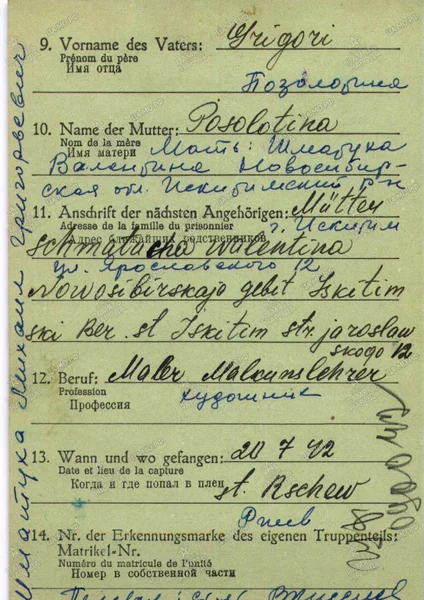 9. Vorname des Vaters: Grigori
Prénom du père
Имя отца
Позолотина
10. Name der Mutter: Posolotina
Nom de la mère
Имя матери Мать: Шматуха
Валентина Новосибир-
ская обл. Искитимский р-н
11. Anschrift der nächsten Angehörigen: Mutter
Adresse de la famille du prisonnier г. Искитим
Адрес ближайших родственников
Schmatucha Walentina
ул. Ярославского 12
Nowosibirskaja gebit Iskitim
ski Ber. st Iskitim str. jaroslaw
skogo 12
12. Beruf: Maler
Profession художник
Профессия
13. Wann und wo gefangen: 20 7 42
Date et lieu de la capture
Когда и где попал в плен st. Rschew
Ржев
14. Nr. der Erkennungsmarke des eigenen Truppenteils:
Matrikel-Nr.
Numéro du matricule de l'unité
Номер в собственной части
Шматуха Михаил Григорьевич